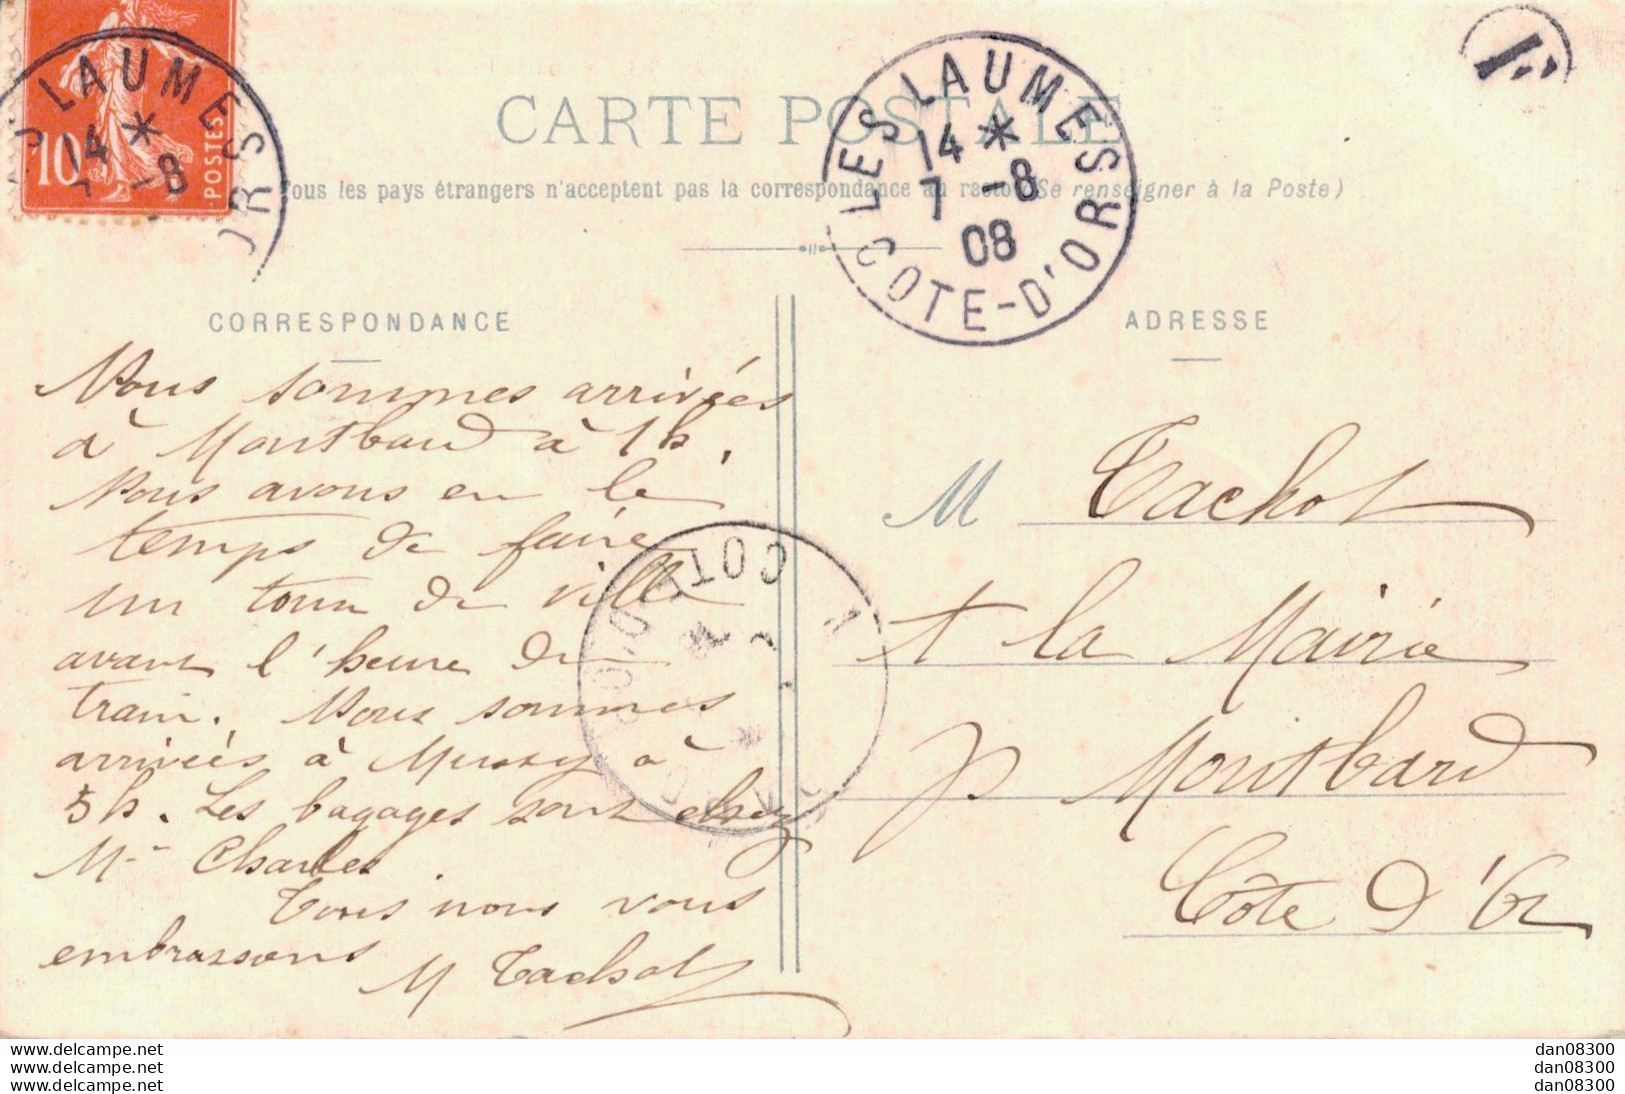 10
POSTES
LES LAUMES
14 *
7 -8
CARTE POSTALE
LES LAUMES
14 *
7 -8
08
COTE-D'OR
Tous les pays étrangers n'acceptent pas la correspondance au recto (Se renseigner à la Poste)
CORRESPONDANCE
ADRESSE
Nous sommes arrivées
à Montbard à 1h.
Nous avons eu le
temps de faire
un tour de ville
avant l'heure du
train. Nous sommes
arrivées à Mussy à
5h. Les bagages sont chez
Mr Charles.
Tous nous vous
embrassons
M Tachot
M Tachot
A la Mairie
Montbard
Côte d'Or
COTE-D'OR
www.delcampe.net
www.delcampe.net
www.delcampe.net
dan08300
dan08300
dan08300